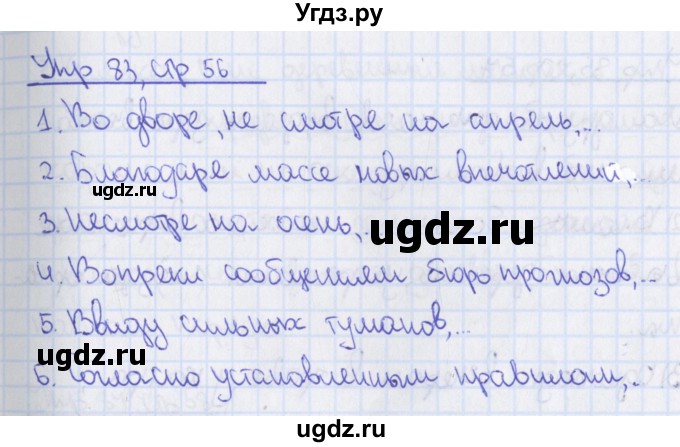 Угдз.ру
Упр 83, стр 56
1. Во дворе, не смотре на апрель,...
2. Благодаре массе новых впечатлений,..
ugdz.ru
3. Несмотре на осень,
ugdz.ru
4. Вопреки сообщениям бюро прогнозов,...
5. Ввиду сильных туманов,...
ugdz.ru
6. Согласно установленным правилам,..
ugdz.ru
ugdz.ru